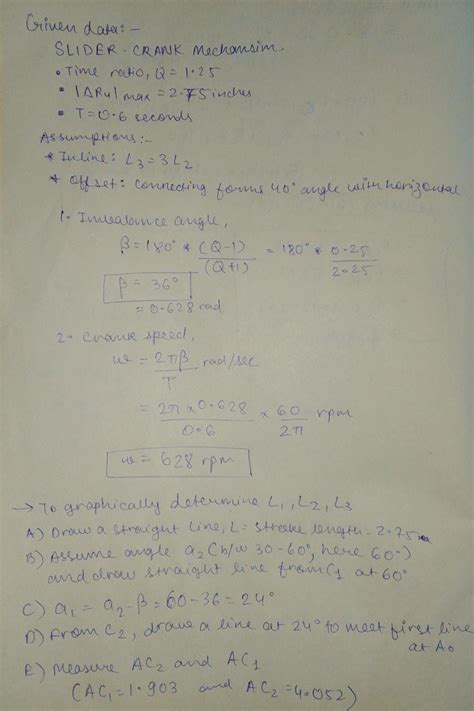 Given data:-
SLIDER-CRANK Mechansim.
• Time ratio, Q = 1.25
• |ΔR4|max = 2.75 inches
• T=0.6 seconds
Assumptions:-
* Inline: L3=3L2
* Offset: Connecting forms 40° angle with horizontal
1. Imbalance angle,
β=180° * (Q-1)/(Q+1) = 180° * 0.25/2.25
β = 36°
= 0.628 rad
2. Crank speed,
w = 2πβ/T rad/sec
= 2π×0.628/0.6 × 60/2π rpm
w = 628 rpm
→ To graphically determine L1, L2, L3
A) Draw a straight line, L= stroke length=2.75
B) Assume angle a2 (b/w 30-60°, here 60°)
and draw straight line from C1 at 60°
C) a1 = a2-β=60-36=24°
D) From C2, draw a line at 24° to meet first line
at A0
E) Measure AC2 and AC1
(AC1=1.903 and AC2=4.052)